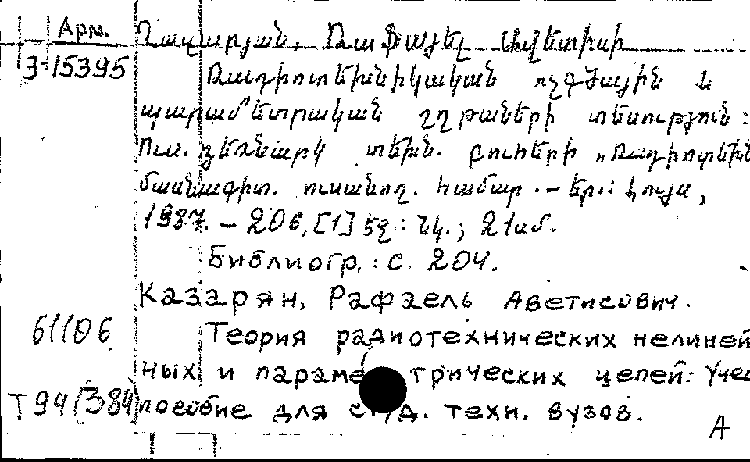 Арм. Ղազարյան, Ռաֆայել Ավետիսի
З-15395 Ռադիոտեխնիկական ոչգծային և
պարամետրական շղթաների տեսություն:
Ուս. ձեռնարկ տեխն. բուհերի "Ռադիոտեխն
մասնագիտ. ուսանող. համար. - Եր.: Լույս,
1987. - 206, [1] էջ : նկ.; 21սմ.
Библиогр.: с. 204.
Казарян, Рафаель Аветисович.
61106 Теория радиотехнических нелиней
ных и параме трических цепей: Учеб
Т94(384) пособие для студ. техн. вузов.
А